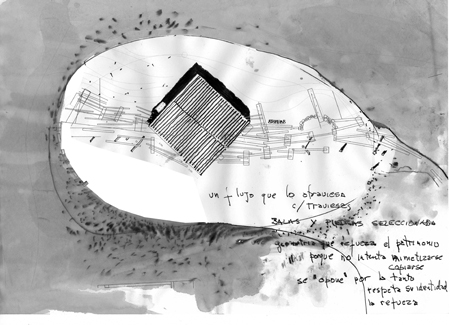 un flujo que lo atraviesa
c/ travieses
BALAS Y PIEDRAS SELECCIONADA
geometria que refuerza el patrimonio
porque no intenta mimetizarse
copiarse
se "opone" por lo tanto
respeta su identidad
la refuerza